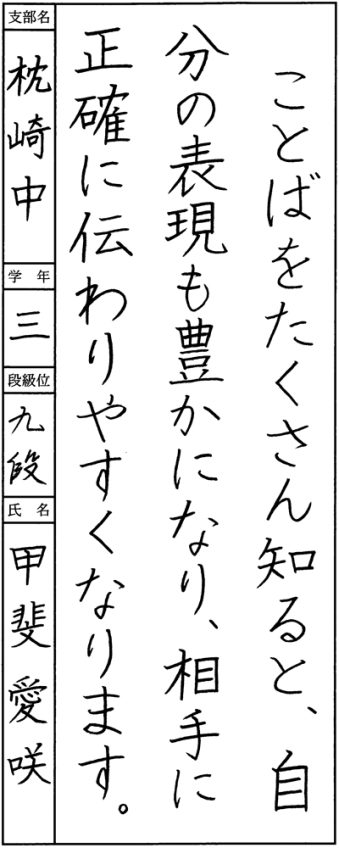 ことばをたくさん知ると、自
分の表現も豊かになり、相手に
正確に伝わりやすくなります。
支部名
枕崎中
学年
三
段級位
九段
氏名
甲斐愛咲